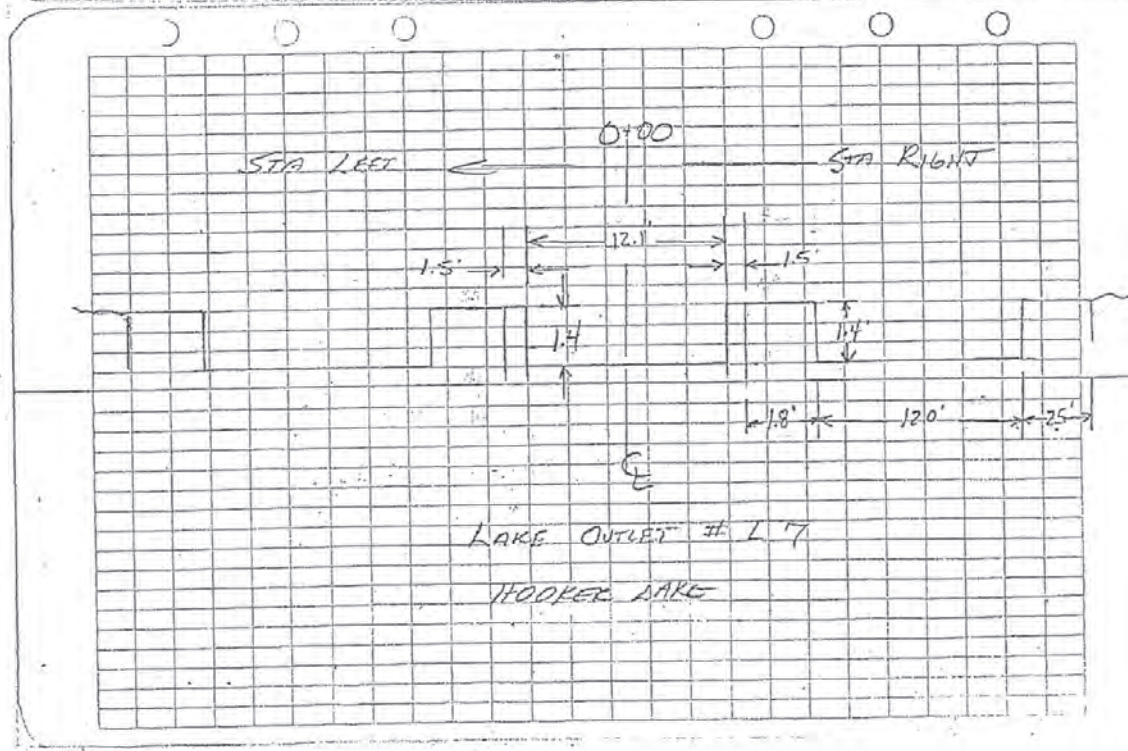 0+00
STA LEFT STA RIGHT
12.1'
1.5' 1.5'
1.4' 1.4'
1.8' 12.0' 2.5'
CL
LAKE OUTLET # L 7
HOOKER LAKE